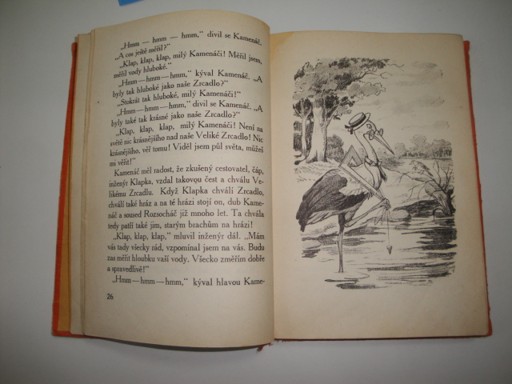 „Hmm — hmm — hmm,“ divil se Kamenáč.
„A cos ještě měřil?“
„Klap, klap, klap, milý Kamenáči! Měřil jsem,
měřil vody hluboké.“
„Hmm—hmm—hmm,“ kýval Kamenáč. „A
byly tak hluboké jako naše Zrcadlo?“
„Stokrát tak hluboké, milý Kamenáči!“
„Hmm—hmm—hmm,“ divil se Kamenáč. „A
byly také tak krásné jako naše Zrcadlo?“
„Klap, klap, klap, milý Kamenáči! Není na
světě nic krásnějšího nad naše Veliké Zrcadlo! Nic
krásnějšího, věř tomu! Viděl jsem půl světa, můžeš
mi věřit!“
Kamenáč měl radost, že zkušený cestovatel, čáp,
inženýr Klapka, vzdal takovou čest a chválu Ve-
likému Zrcadlu. Když Klapka chválí Zrcadlo,
chválí také hráz a na té hrázi stojí on, dub Kame-
náč a soused Rozsocháč již mnoho let. Ta chvála
tedy patří také jim, starým brachům na hrázi!
„Klap, klap, klap,“ mluvil inženýr dál. „Mám
vás tady všecky rád, vzpomínal jsem na vás. Budu
zas měřit hloubku vaší vody. Všecko změřím dobře
a spravedlivě!“
„Hmm—hmm—hmm,“ kýval hlavou Kame-
26